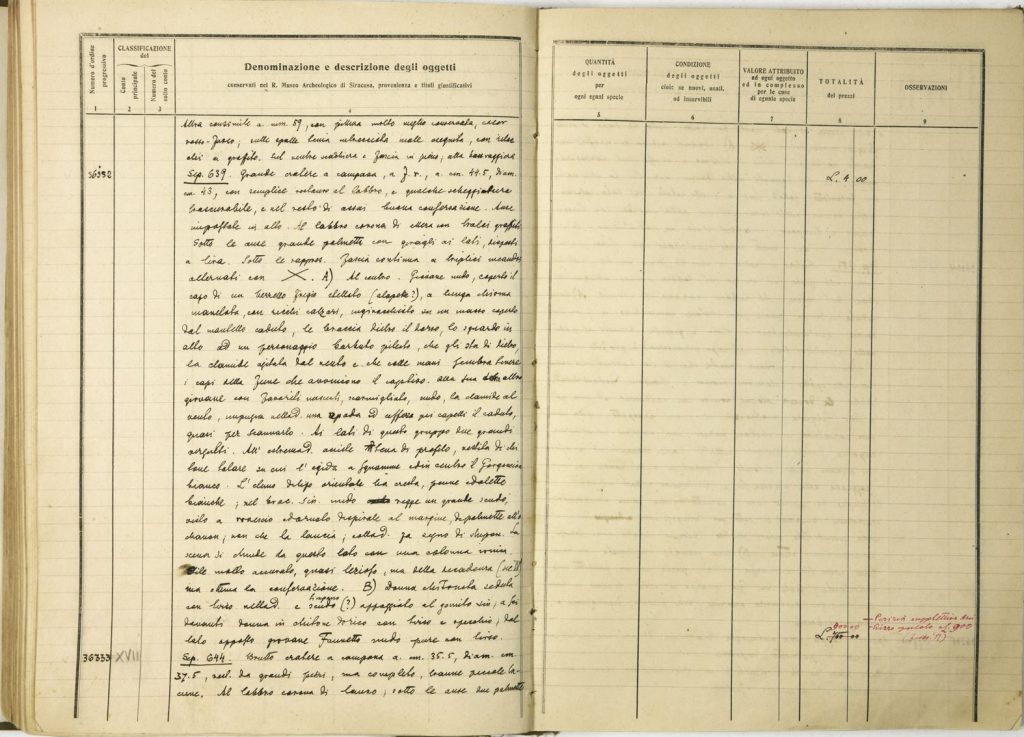 Numero d'ordine progressivo
CLASSIFICAZIONE del
Conto principale
Numero del sotto conto
Denominazione e descrizione degli oggetti
conservati nel R. Museo Archeologico di Siracusa, provenienza e titoli giustificativi
1 2 3 4
Altra consimile a num. 59, con pittura molto meglio conservata, color
rosso-fosco; sulle spalle linea intrecciata male eseguita, con
a graffito. Nel ventre e fascia in
36332
Sep. 639. Grande cratere a campana, a f. r., a cm. 44.5, diam.
cm 43, con semplice restauro al labbro, e qualche scheggiatura
trascurabile, e nel resto di assai buona conservazione. Anse
impostate in alto. Al labbro corona di con graffiti
Sotto le anse grande palmette con giragli ai lati, disposti
a lira. Sotto le rappres. fascia continua a triplici meandri
alternati con X. A) Al centro. Giovane nudo, coperto il
capo di un berretto frigio (alopeke?), a lunga chioma
con ricchi calzari, inginocchiato su un masso coperto
dal mantello caduto, le braccia dietro il dorso, lo sguardo in
alto ad un personaggio barbato pileato, che gli sta di dietro,
la clamide agitata dal vento e che colle mani sembra tenere
i capi della fune che avvincono il captivo. Alla sua altro
giovane con favoriti nascenti, nudo, la clamide al
vento, impugna nella d. una spada ed afferra pei capelli il caduto,
quasi per scannarlo. Ai lati di questo gruppo due grandi
virgulti. All' estrema d. assiste Athena di profilo, vestita di chi-
tone talare su cui l' egida a squamme ed in centro il Gorgoneion
bianco. L' elmo di tipo orientale ha cresta, penne ed alette
bianche; nel brac. sin. nudo regge un grande scudo,
visto a rovescio ed ornato di spirale al margine, di palmette all'o-
chanon; non che la lancia; colla d. fa segno di stupore. La
scena si chiude da questo lato con una colonna ionica.
Stile molto accurato, quasi lezioso, ma della decadenza
ma ottima la conservazione. B) Donna chitonata seduta
con tirso nella d. e timpano scudo (?) appoggiato al gomito sin; a lei
davanti donna in chitone dorico con tirso e specchio; dal
lato opposto giovane Faunetto nudo pure con tirso.
36333 XVIII
Sep. 644. Brutto cratere a campana a. cm. 35.5, diam. cm
37.5, rest. da grandi pezzi, ma completo, tranne piccole la-
cune. Al labbro corona di lauro; sotto le anse due palmette
QUANTITÀ degli oggetti per ogni egual specie
CONDIZIONE degli oggetti cioè se nuovi, usati, od inservibili
VALORE ATTRIBUITO ad ogni oggetto ed in complesso per le cose di eguale specie
TOTALITÀ dei prezzi
OSSERVAZIONI
5 6 7 8 9
L. 4 00
900 00
L. 00